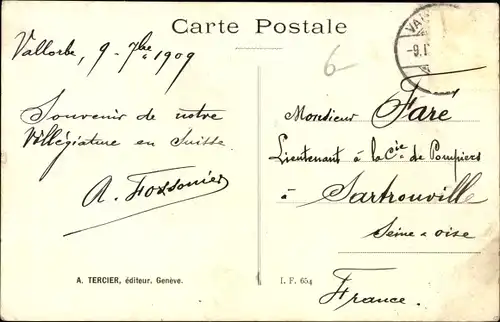 Carte Postale
Vallorbe, 9 - 7bre 1909
Souvenir de notre
Villégiature en Suisse.
A. TERCIER, éditeur. Genève.
6-
VA
-9.I
Monsieur Fare
Lieutenant à la Cie de Pompiers
à Sartrouville
Seine & Oise
France.
I. F. 654